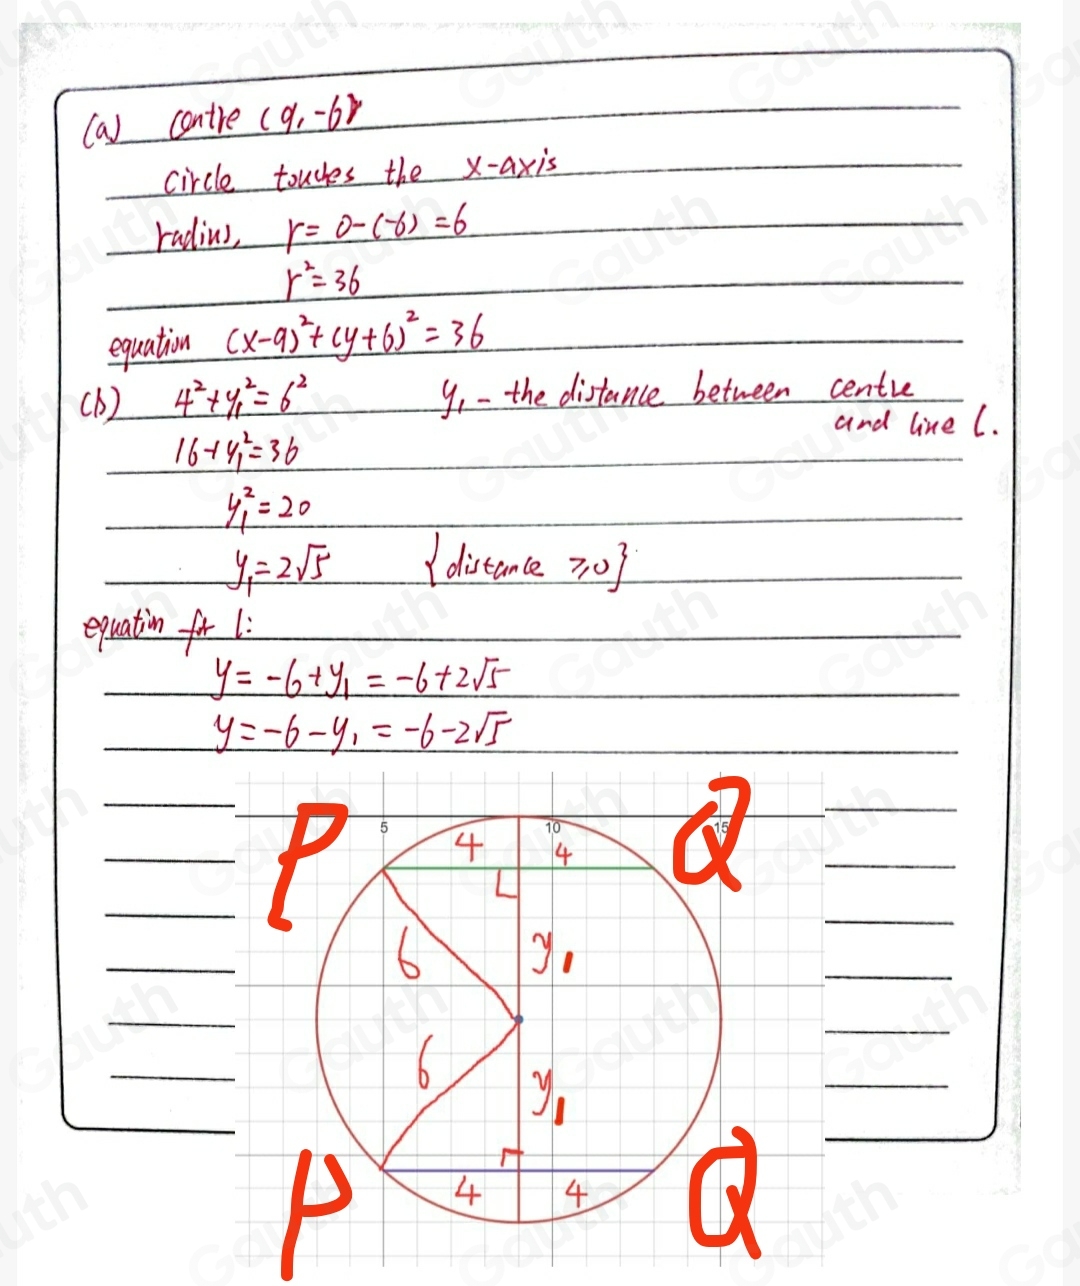 (a) centre (9, -6)
circle touches the x-axis
radius, r = 0-(-6) = 6
r² = 36
equation (x-9)²+(y+6)² = 36
(b) 4²+y₁² = 6² y₁ - the distance between centre
and line l.
16+y₁² = 36
y₁² = 20
y₁ = 2√5 {distance ⩾0}
equation for l:
y = -6+y₁ = -6+2√5
y = -6-y₁ = -6-2√5
P Q
5 10 15
4 4
6 y₁
6 y₁
P Q
4 4
Gauth